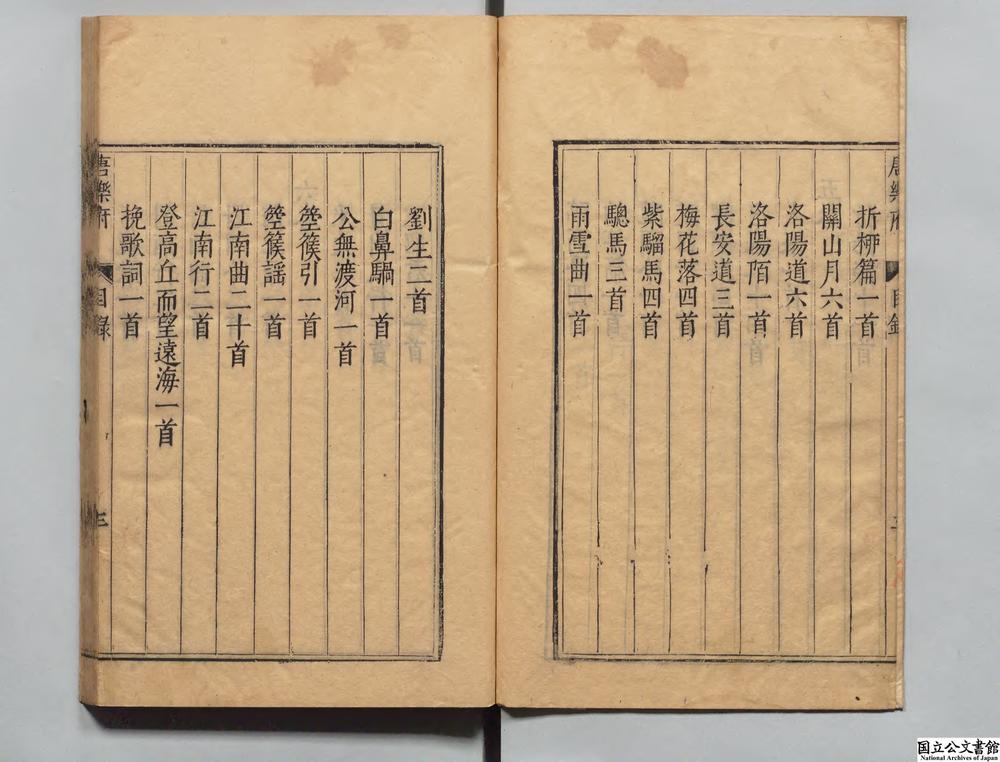 唐樂府
目錄
折桺篇一首
關山月六首
洛陽道六首
洛陽陌一首
長安道三首
梅花落四首
紫騮馬四首
驄馬三首
雨雪曲一首
劉生二首
白鼻騧一首
公無渡河一首
箜篌引一首
箜篌謡一首
江南曲二十首
江南行二首
登高丘而望遠海一首
挽歌詞一首
唐樂府
目錄
三
国立公文書館
National Archives of Japan